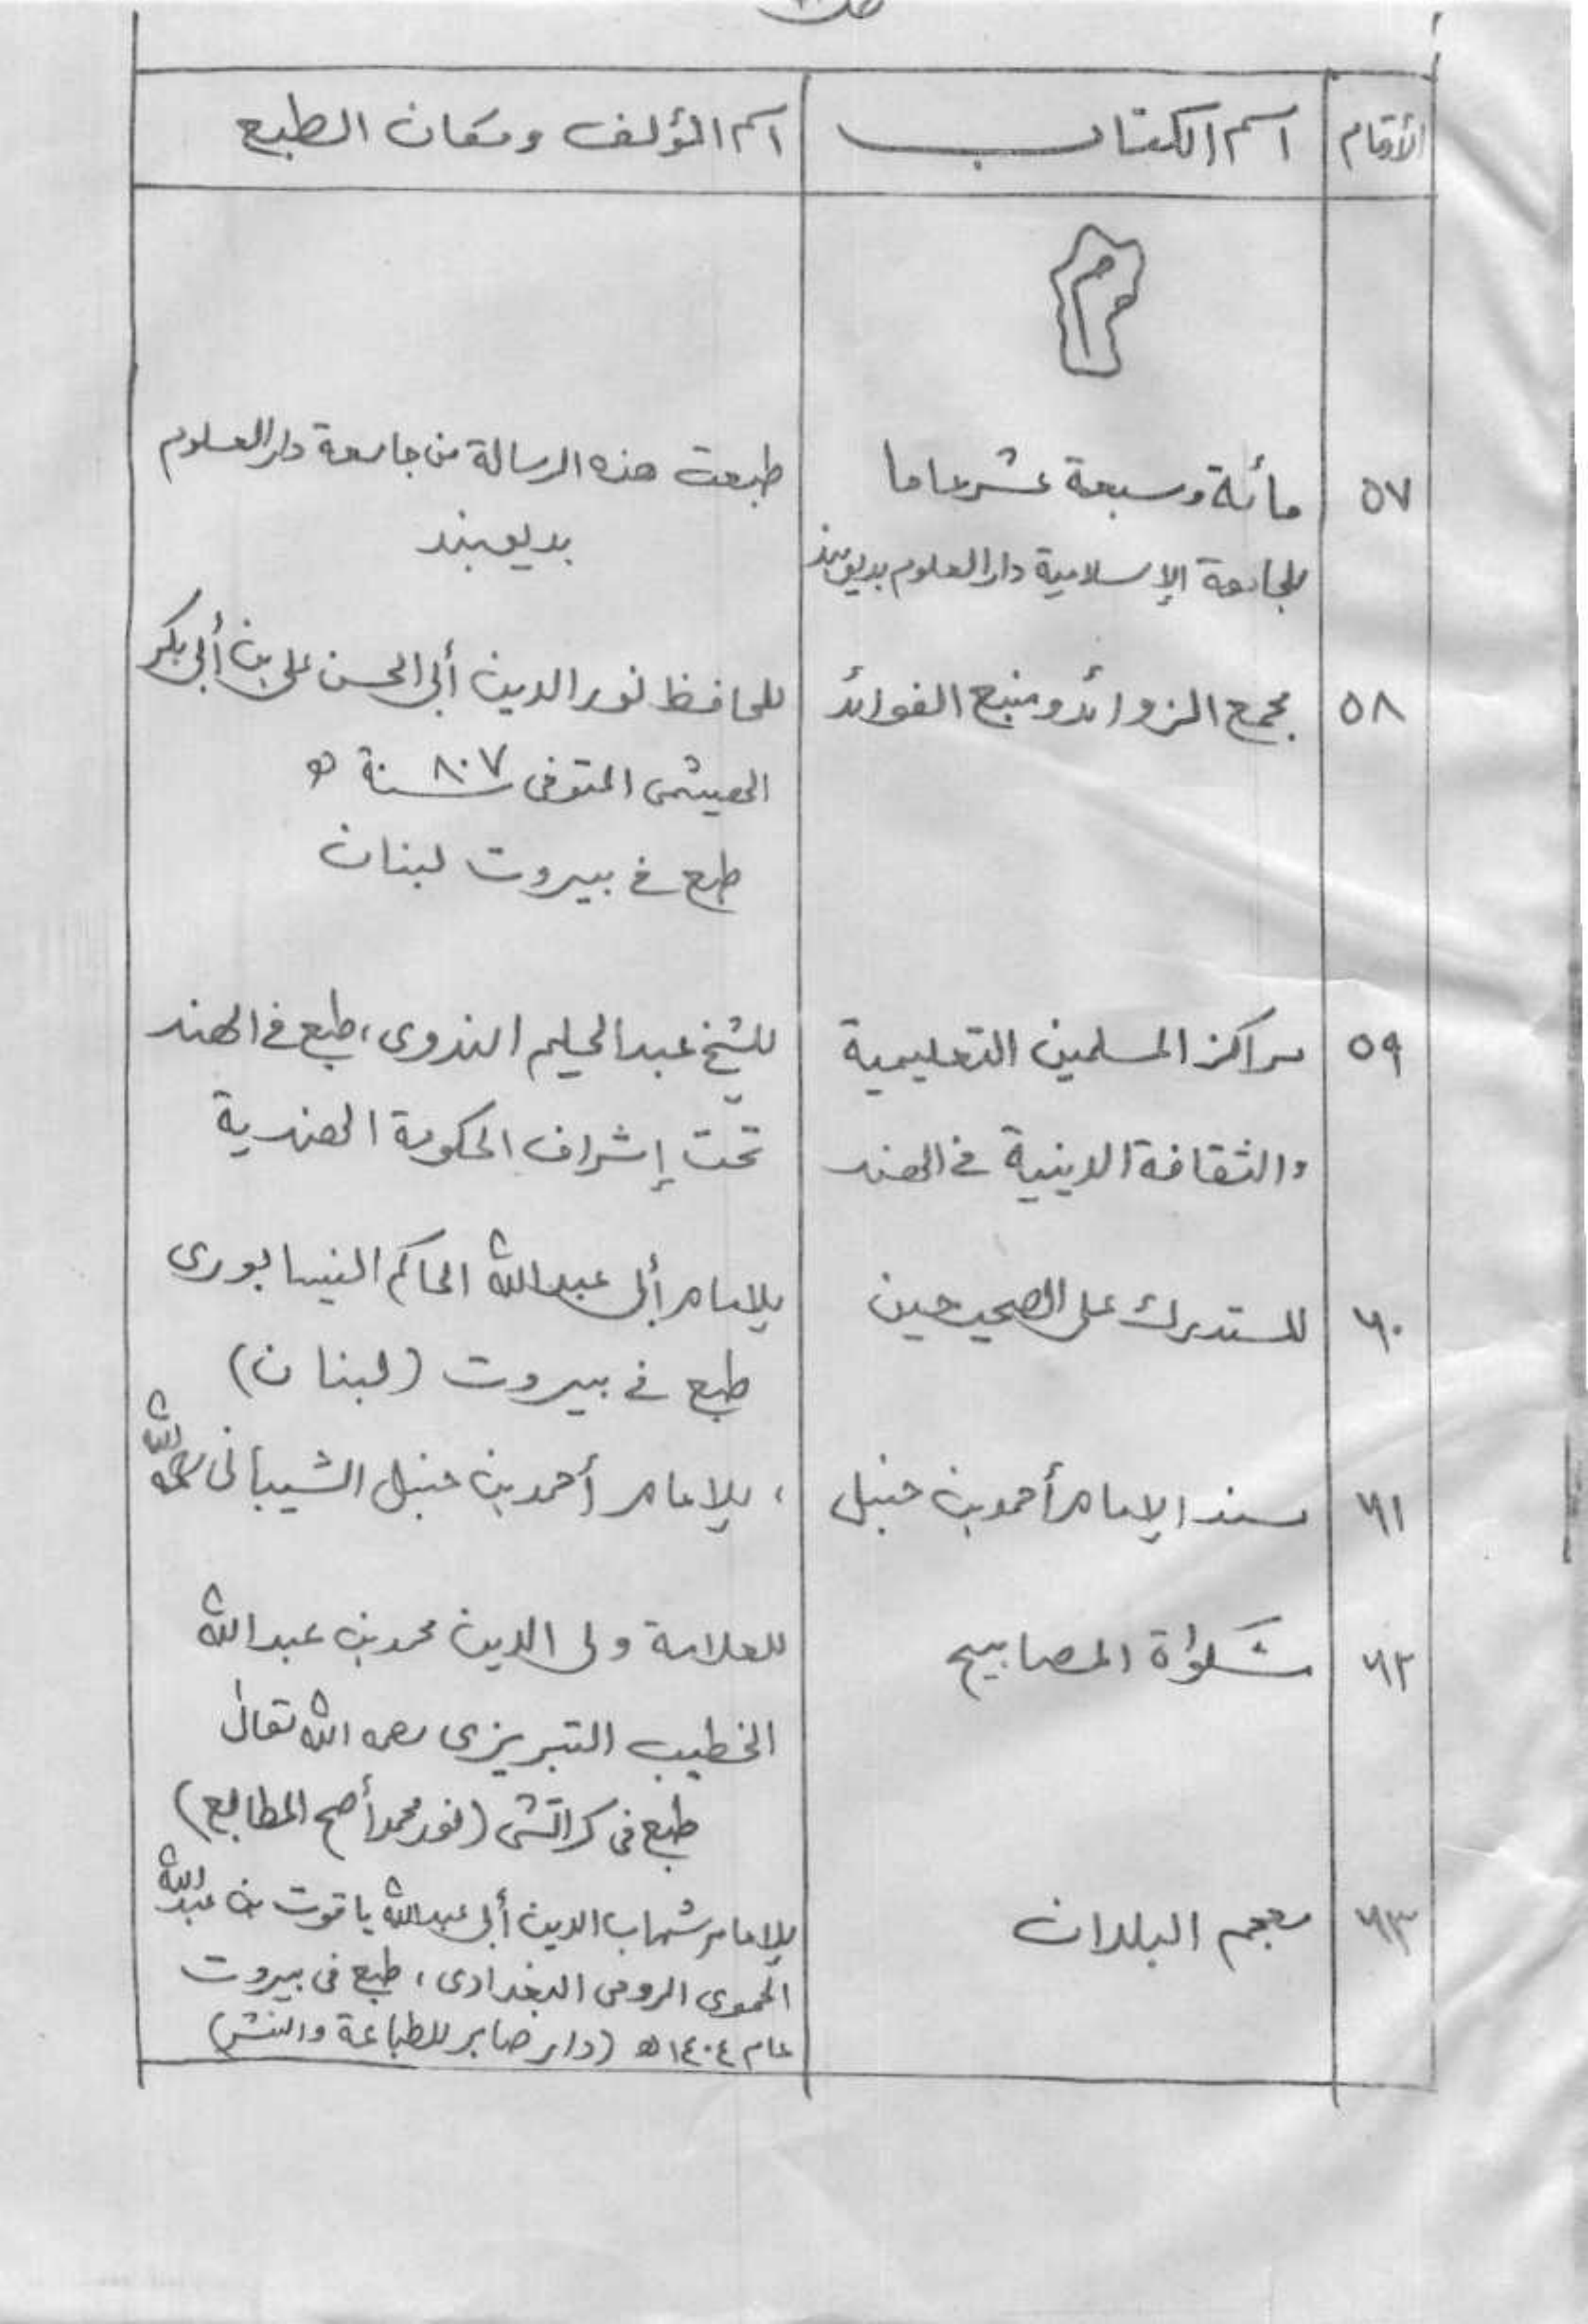 الأرقام | اسم الكتاب | اسم المؤلف ومكان الطبع
م
٥٧ | مأئة وسبعة عشر عاما | طبعت هذه الرسالة من جامعة دار العلوم
للجامعة الإسلامية دار العلوم بديوبند | بديوبند
٥٨ | مجمع الزوائد ومنبع الفوائد | للحافظ نور الدين أبي الحسن علي بن أبي بكر
الهيثمى المتوفى سنة ٨٠٧ ھ
طبع في بيروت لبنان
٥٩ | مراكز المسلمين التعليمية | للشيخ عبد الحليم الندوى، طبع في الهند
والثقافة الدينية في الهند | تحت إشراف الحكومة الهندية
٦٠ | المستدرك على الصحيحين | للإمام أبى عبد الله الحاكم النيسابورى
طبع في بيروت (لبنان)
٦١ | مسند الإمام أحمد بن حنبل | ، للإمام أحمد بن حنبل الشيبانى رحمه الله
٦٢ | مشكوٰة المصابيح | للعلامة ولى الدين محمد بن عبد الله
الخطيب التبريزى رحمه الله تعالىٰ
طبع فى كراتشى (نور محمد أصح المطابع)
٦٣ | معجم البلدان | للإمام شهاب الدين أبى عبد الله ياقوت بن عبد الله
الحموى الرومى البغدادى، طبع فى بيروت
عام ١٤٠٤ھ (دار صابر للطباعة والنشر)